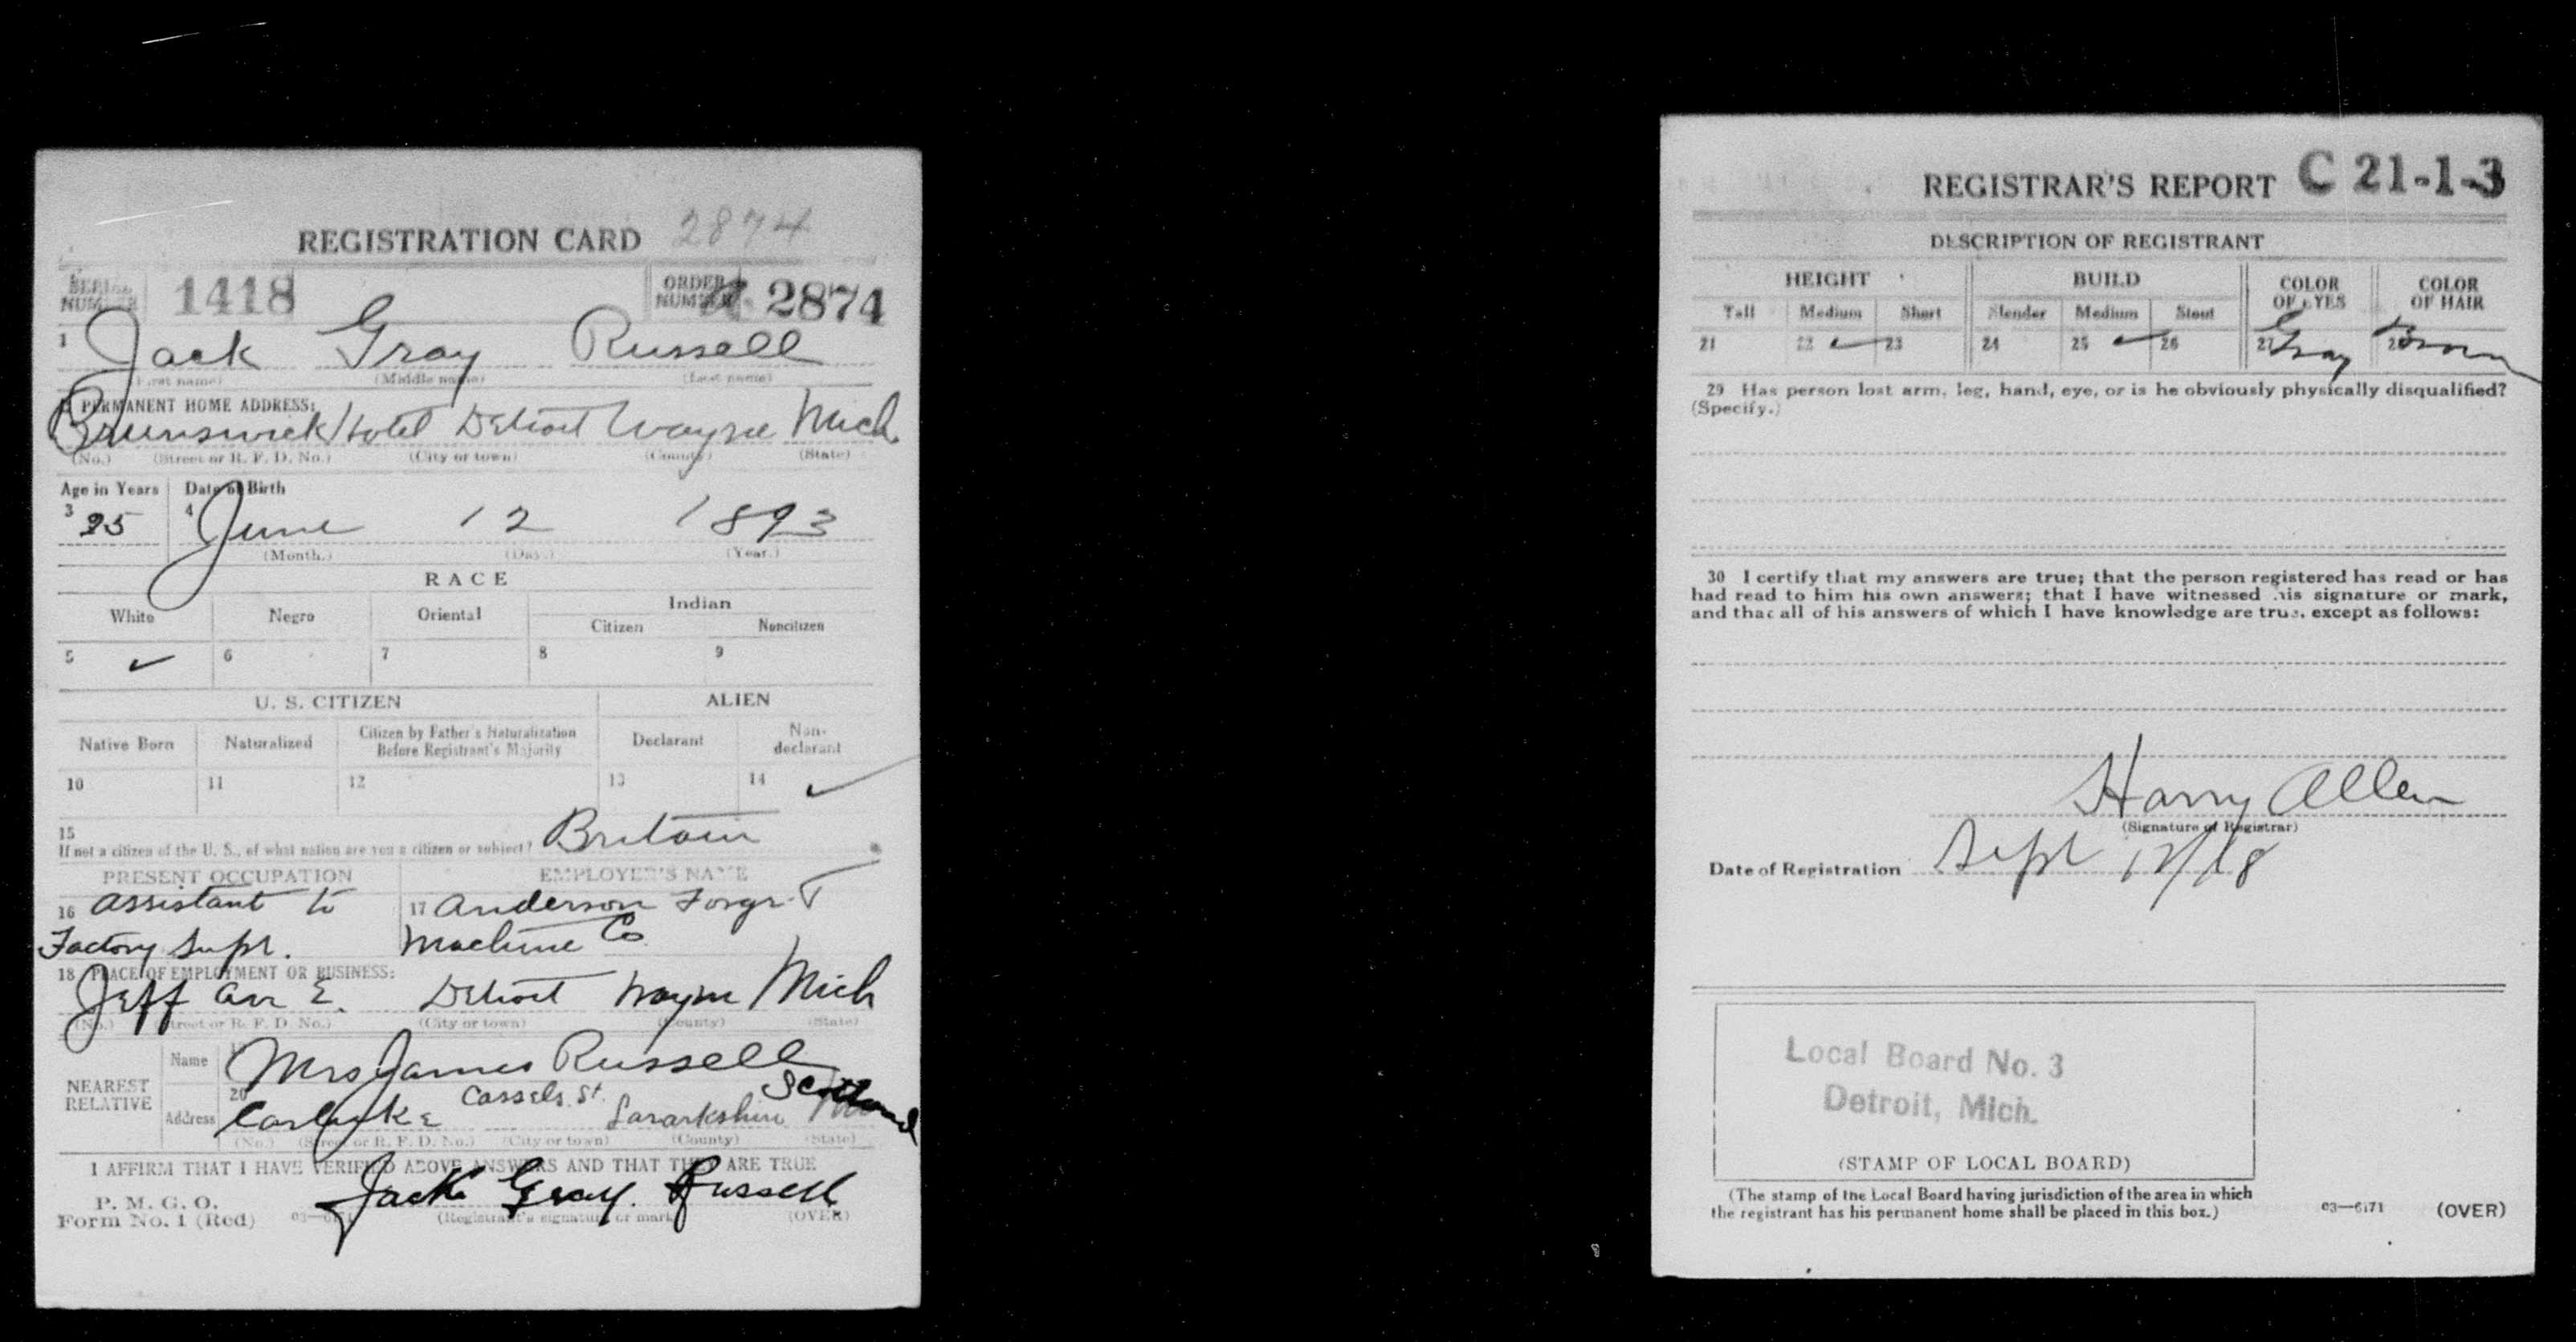 REGISTRATION CARD 2874
SERIAL NUMBER 1418 ORDER NUMBER A 2874
1 Jack Gray Russell
(First name) (Middle name) (Last name)
2 PERMANENT HOME ADDRESS:
Brunswick Hotel Detroit Wayne Mich
(No.) (Street or R. F. D. No.) (City or town) (County) (State)
Age in Years Date of Birth
3 25 4 June 12 1893
(Month.) (Day.) (Year.)
RACE
White Negro Oriental Indian
Citizen Noncitizen
5 ✓ 6 7 8 9
U. S. CITIZEN ALIEN
Native Born Naturalized Citizen by Father's Naturalization Before Registrant's Majority Declarant Non-declarant
10 11 12 13 14 ✓
15
If not a citizen of the U. S., of what nation are you a citizen or subject? Britain
PRESENT OCCUPATION EMPLOYER'S NAME
16 Assistant to 17 Anderson Forge &
Factory Supt. Machine Co
18 PLACE OF EMPLOYMENT OR BUSINESS:
Jeff Ave E. Detroit Wayne Mich
(No.) (Street or R. F. D. No.) (City or town) (County) (State)
NEAREST RELATIVE
Name 19 Mrs James Russell
Address 20 Carluke Cassels St. Lanarkshire Scotland
(No.) (Street or R. F. D. No.) (City or town) (County) (State)
I AFFIRM THAT I HAVE VERIFIED ABOVE ANSWERS AND THAT THEY ARE TRUE
P. M. G. O.
Form No. 1 (Red) 03—6171 Jack Gray. Russell
(Registrant's signature or mark) (OVER)
REGISTRAR'S REPORT C 21-1-3
DESCRIPTION OF REGISTRANT
HEIGHT BUILD COLOR OF EYES COLOR OF HAIR
Tall Medium Short Slender Medium Stout
21 22 ✓ 23 24 25 ✓ 26 27 Gray 28 Brown
29 Has person lost arm, leg, hand, eye, or is he obviously physically disqualified?
(Specify.)
30 I certify that my answers are true; that the person registered has read or has
had read to him his own answers; that I have witnessed his signature or mark,
and that all of his answers of which I have knowledge are true, except as follows:
Harry Allen
(Signature of Registrar)
Date of Registration Sept 12/18
Local Board No. 3
Detroit, Mich.
(STAMP OF LOCAL BOARD)
(The stamp of the Local Board having jurisdiction of the area in which
the registrant has his permanent home shall be placed in this box.)
03—6171 (OVER)